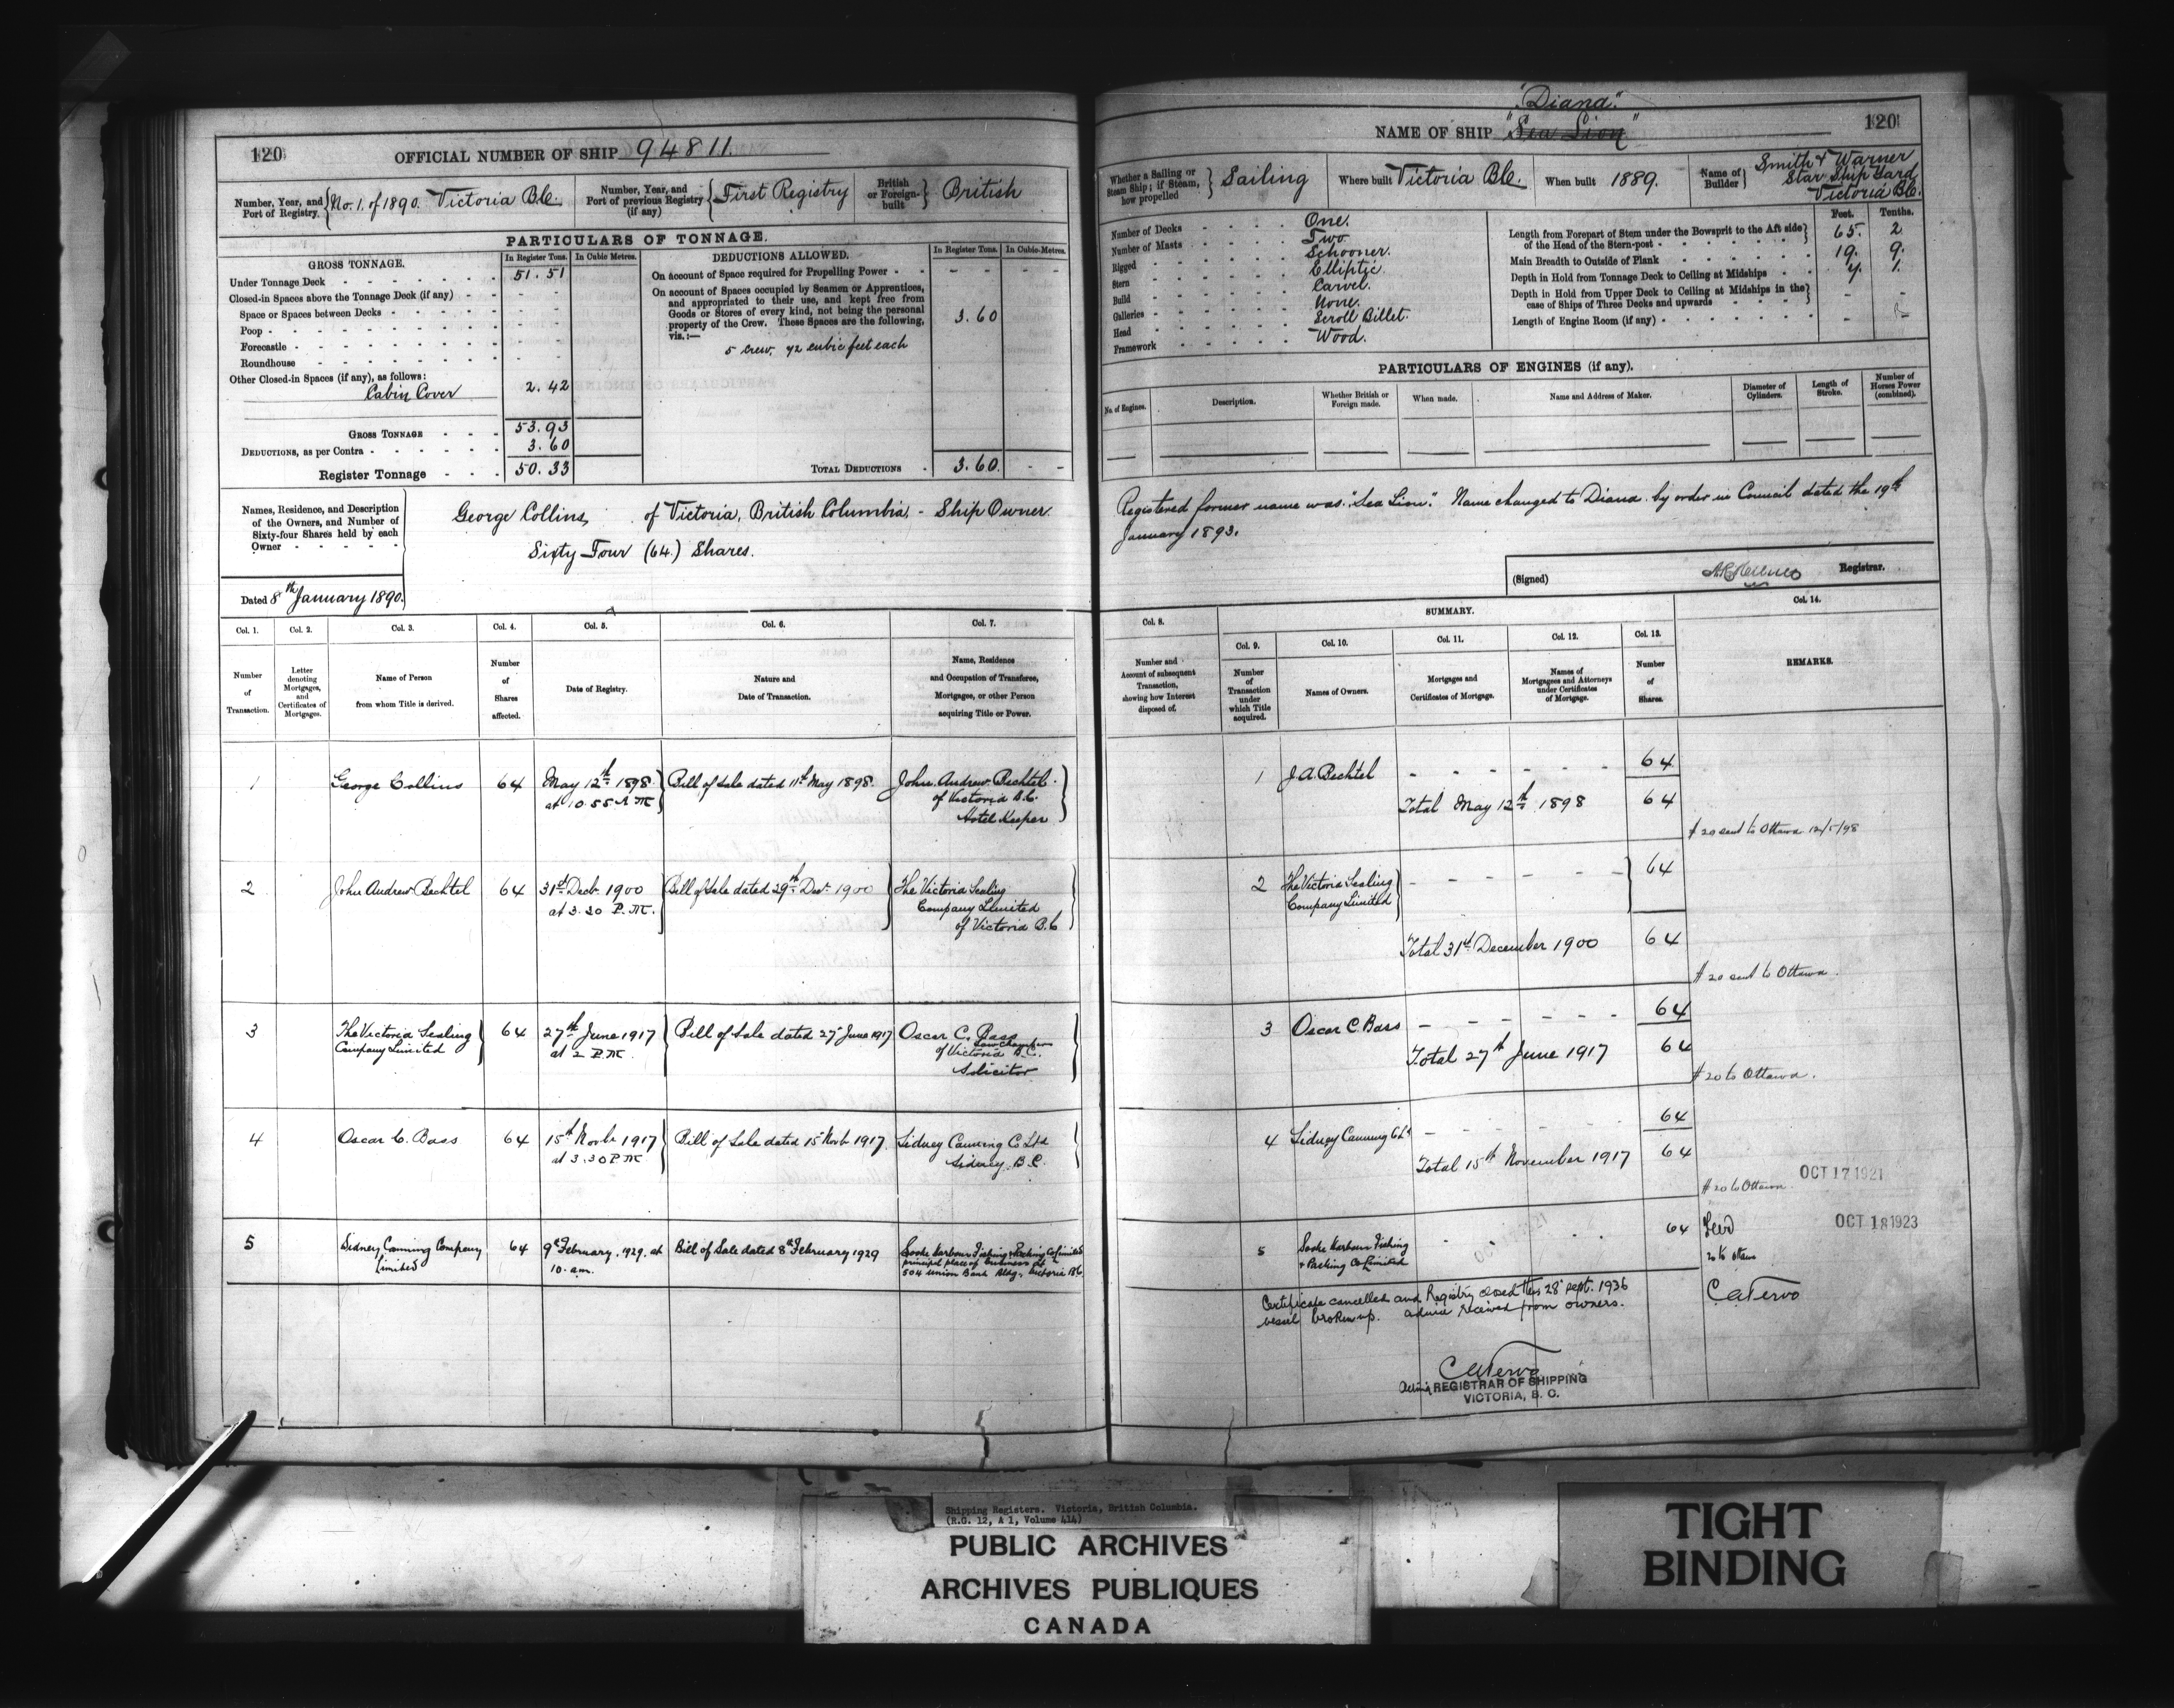 120
OFFICIAL NUMBER OF SHIP 94811.
Number, Year, and Port of Registry. No. 1. of 1890. Victoria B.C.
Number, Year, and Port of previous Registry (if any) First Registry
British or Foreign-built British
PARTICULARS OF TONNAGE.
GROSS TONNAGE.
In Register Tons.
In Cubic Metres.
Under Tonnage Deck 51.51
Closed-in Spaces above the Tonnage Deck (if any)
Space or Spaces between Decks
Poop
Forecastle
Roundhouse
Other Closed-in Spaces (if any), as follows:
Cabin Cover 2.42
GROSS TONNAGE 53.93
DEDUCTIONS, as per Contra 3.60
Register Tonnage 50.33
DEDUCTIONS ALLOWED.
In Register Tons.
In Cubic Metres.
On account of Space required for Propelling Power
On account of Spaces occupied by Seamen or Apprentices,
and appropriated to their use, and kept free from
Goods or Stores of every kind, not being the personal
property of the Crew. These Spaces are the following,
viz.:— 3.60
5 crew, 72 cubic feet each
TOTAL DEDUCTIONS 3.60
Names, Residence, and Description
of the Owners, and Number of
Sixty-four Shares held by each
Owner
George Collins, of Victoria, British Columbia, - Ship Owner
Sixty Four (64) Shares.
Dated 8th January 1890.
Col. 1. Col. 2. Col. 3. Col. 4. Col. 5. Col. 6. Col. 7.
Number of Transaction.
Letter denoting Mortgages, and Certificates of Mortgages.
Name of Person from whom Title is derived.
Number of Shares affected.
Date of Registry.
Nature and Date of Transaction.
Name, Residence and Occupation of Transferee, Mortgagee, or other Person acquiring Title or Power.
1 George Collins 64 May 12th 1898 Bill of Sale dated 11th May 1898. John Andrew Bechtel
at 10.55 A M of Victoria B.C.
Hotel Keeper
2 John Andrew Bechtel 64 31st Decb. 1900 Bill of Sale dated 29th Dec. 1900 The Victoria Sealing
at 3.30 P.M. Company Limited
of Victoria B.C
3 The Victoria Sealing 64 27th June 1917 Bill of Sale dated 27 June 1917 Oscar C. Bass
Company Limited at 2 P.M. of Victoria B.C.
Solicitor
4 Oscar C. Bass 64 15th Novb 1917 Bill of Sale dated 15 Novb 1917 Sidney Canning Co Ltd
at 3.30 P.M Sidney. B.C.
5 Sidney Canning Company 64 9th February. 1929. at Bill of Sale dated 8th February 1929 Sooke Harbour Fishing & Packing Co Limited
Limited 10. am. principal place of business at
504 Union Bank Bldg. Victoria B.C.
"Diana"
NAME OF SHIP "Sea Lion"
120
Whether a Sailing or Steam Ship; if Steam, how propelled Sailing
Where built Victoria B.C.
When built 1889.
Name of Builder Smith & Warner
Star Ship Yard
Victoria B.C.
Number of Decks One.
Number of Masts Two
Rigged Schooner.
Stern Elliptic
Build Carvel.
Galleries None.
Head Scroll Billet.
Framework Wood.
Feet. Tenths.
Length from Forepart of Stem under the Bowsprit to the Aft side
of the Head of the Stern-post 65. 2
Main Breadth to Outside of Plank 19. 9.
Depth in Hold from Tonnage Deck to Ceiling at Midships 7. 1.
Depth in Hold from Upper Deck to Ceiling at Midships in the
case of Ships of Three Decks and upwards
Length of Engine Room (if any)
PARTICULARS OF ENGINES (if any).
No. of Engines.
Description.
Whether British or Foreign made.
When made.
Name and Address of Maker.
Diameter of Cylinders.
Length of Stroke.
Number of Horses Power (combined).
Registered former name was "Sea Lion". Name changed to Diana by order in Council dated the 19th
January 1893.
(Signed) Registrar.
Col. 8. SUMMARY. Col. 14.
Col. 9. Col. 10. Col. 11. Col. 12. Col. 13.
Number and Account of subsequent Transaction, showing how Interest disposed of.
Number of Transaction under which Title acquired.
Names of Owners.
Mortgages and Certificates of Mortgage.
Names of Mortgagees and Attorneys under Certificates of Mortgage.
Number of Shares.
REMARKS.
1 J A Bechtel 64
Total May 12th 1898 64
# 20 sent to Ottawa 12/5/98
2 The Victoria Sealing 64
Company Limited
Total 31st December 1900 64
# 20 sent to Ottawa
3 Oscar C. Bass 64
Total 27th June 1917 64
# 20 to Ottawa.
4 Sidney Canning Co Ld 64
Total 15th November 1917 64
# 20 to Ottawa. OCT 17 1921
5 Sooke Harbour Fishing 64
& Packing Co Limited
OCT 18 1923
20 to Ottawa
Certificate cancelled and Registry closed this 28 sept. 1936
vessel broken up. advice received from owners.
Acting REGISTRAR OF SHIPPING
VICTORIA, B. C.
Shipping Registers. Victoria, British Columbia.
(R.G. 12, A 1, Volume 414)
PUBLIC ARCHIVES
ARCHIVES PUBLIQUES
CANADA
TIGHT
BINDING